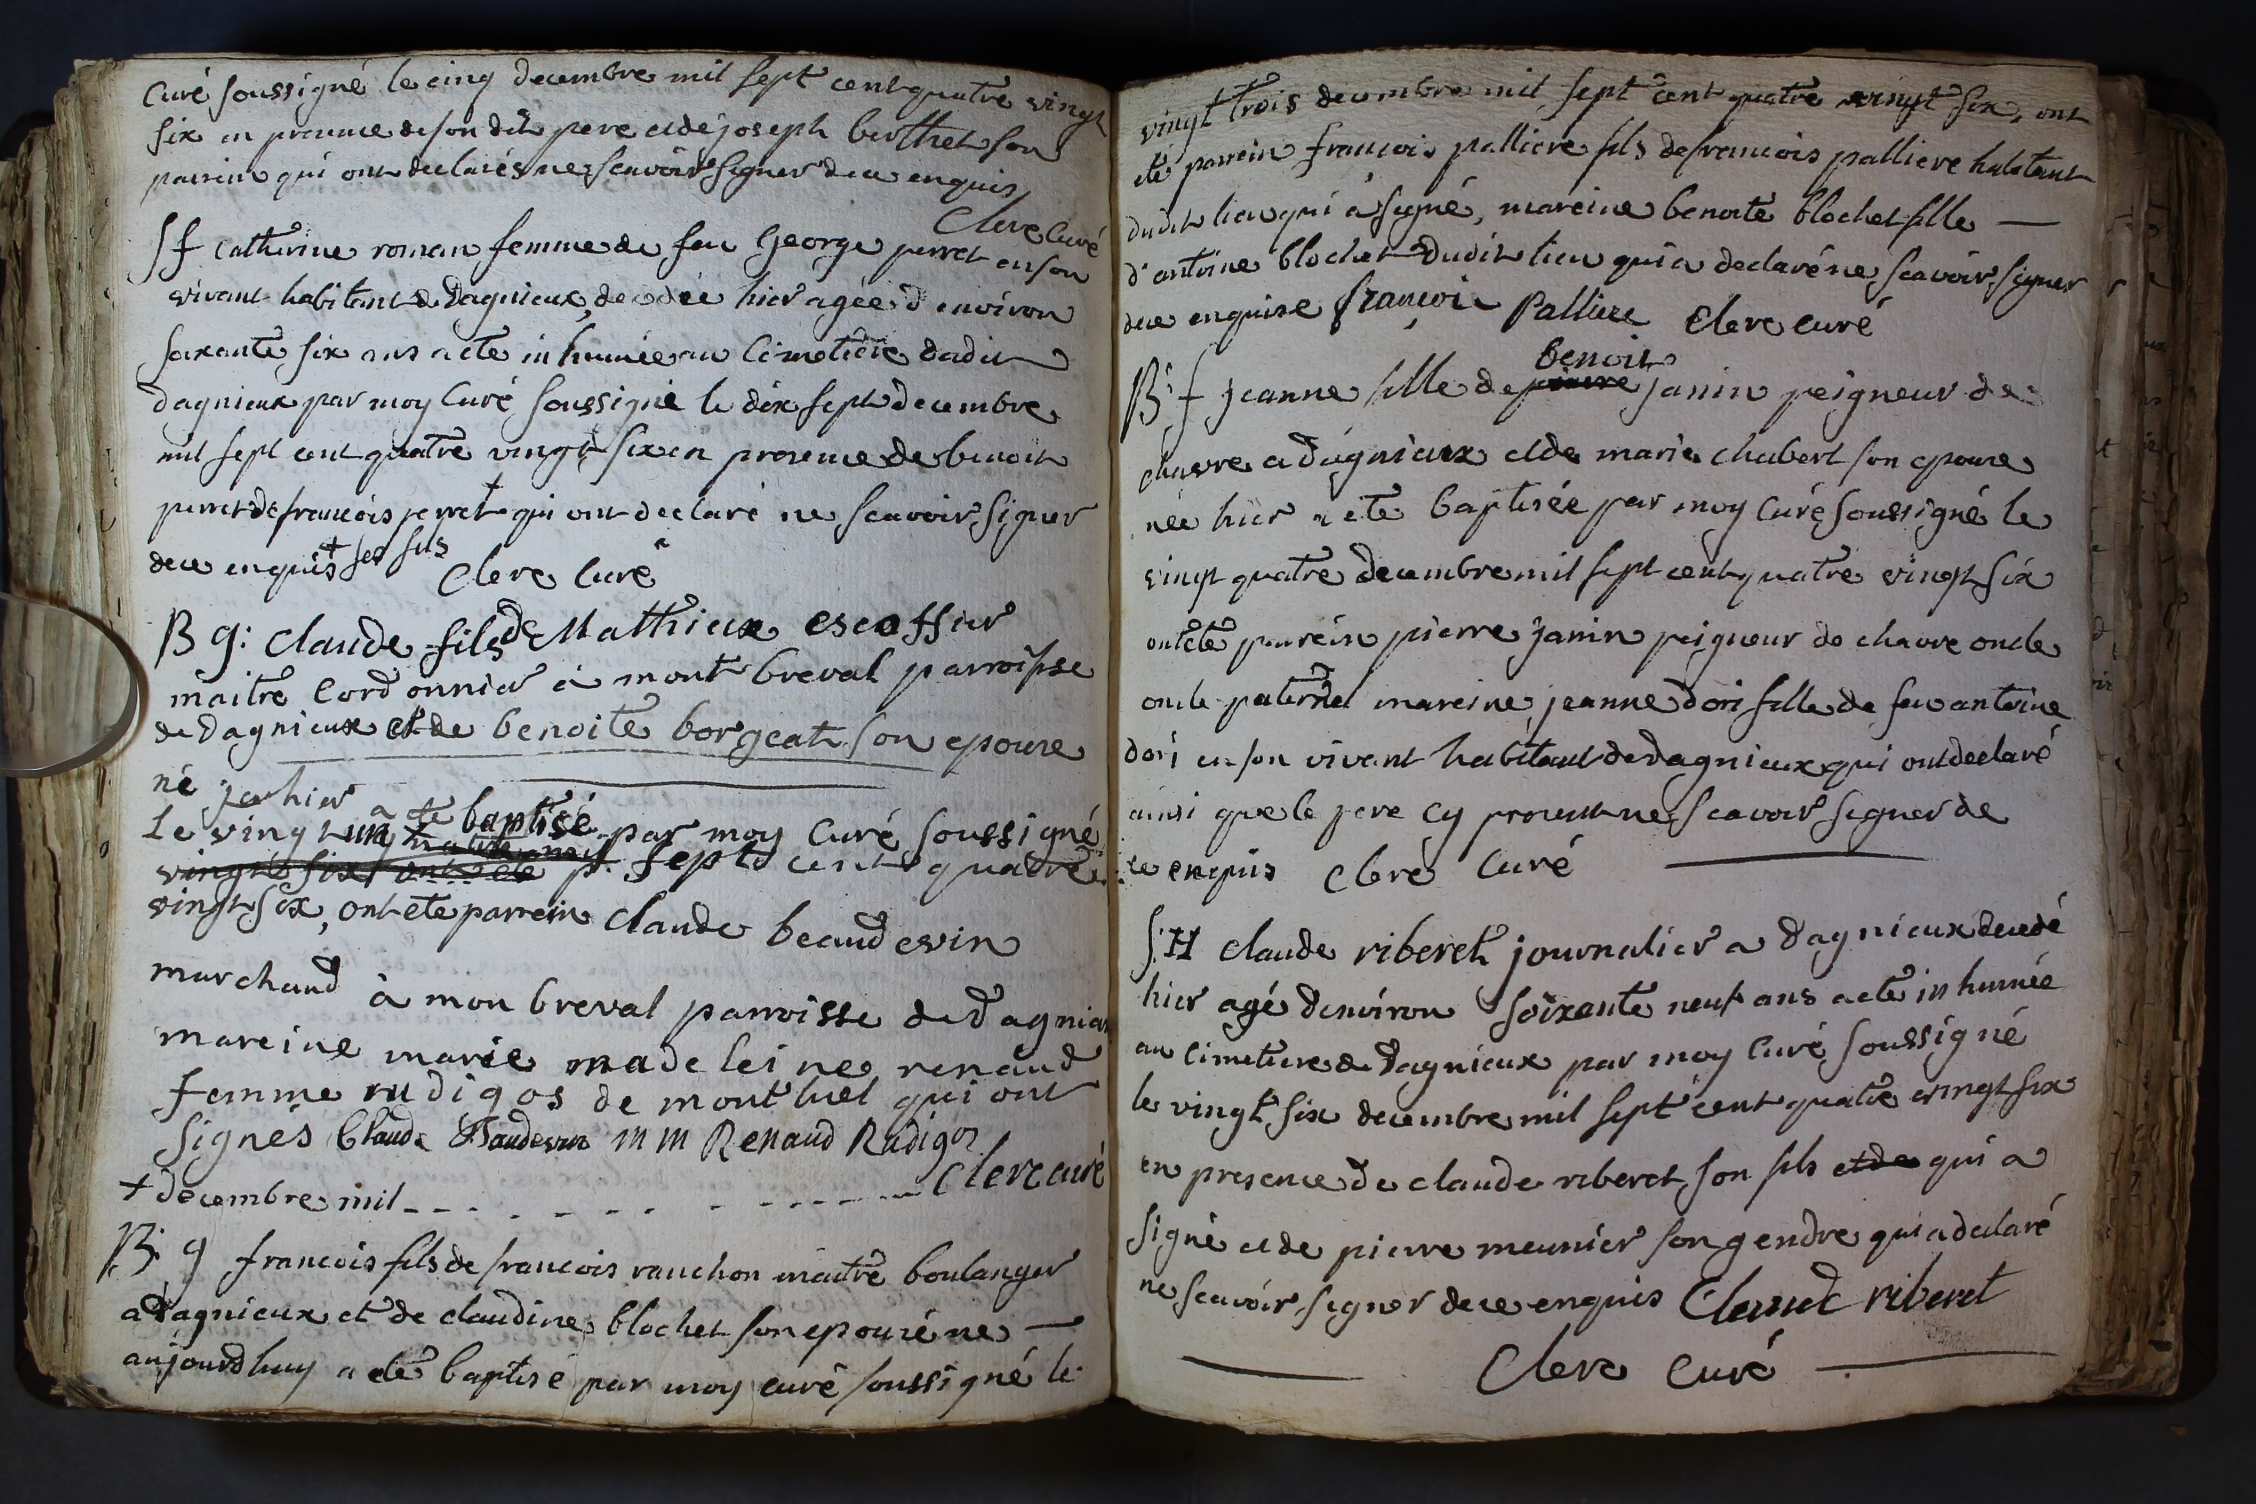 Curé soussigné le cinq decembre mil sept cent quatre vingt
six en presence de son dit pere et de joseph berthet son
parrein qui ont declarés ne scavoir signer de ce enquis
Clerc Curé
S f Catherine roman femme de feu George perret en son
vivant habitant de Dagnieux, decedée hier agée d'environ
soixante six ans a ete inhumée au Cimetiere dudit
dagnieux par moy Curé soussigné le dix sept decembre
mil sept cent quatre vingt six en presence de benoit
perret de francois perret + qui ont declaré ne scavoir signer
de ce enquis + ses fils
Clerc Curé
B g: Claude fils de Mathieux escoffier
maitre Cordonnier à mont breval parroisse
de Dagnieux et de benoite borgeat son epouse
né hier a ete baptisé par moy Curé soussigné
Le vingt un + sept cent quatre
vingt six, ont ete parrein Claude beaudevin
marchand à mon breval parroisse de Dagnieux
mareine marie madeleine renaud
femme rudigos de montluel qui ont
signés Claude Baudevin m m Renaud Rudigos
Clerc curé
+ decembre mil
B. g francois fils de francois rauchon maitre boulanger
a Dagnieux et de claudine blochet son epouse né
aujourdhuy a ete baptisé par moy curé soussigné le
vingt trois decembre mil sept cent quatre vingt six, ont
eté parrein francois palliere fils de francois palliere habitant
dudit lieu qui a signé, mareine benoite blochet fille
d'antoine blochet dudit lieu qui a declaré ne scavoir signer
de ce enquise françois Palliere Clerc curé
B: f Jeanne fille de pierre benoit janin peigneur de
chavre a dagnieux et de marie chabert son epouse
née hier a ete baptisée par moy Curé soussigné le
vingt quatre decembre mil sept cent quatre vingt six
ont ete parrein pierre janin peigneur de chavre oncle
oncle paternel mareine jeanne dori fille de feu antoine
dori en son vivant habitant de Dagnieux qui ont declaré
ainsi que le pere cy present ne scavoir signer de
ce enquis Clerc Curé
S: H Claude riberet journalier a Dagnieux decedé
hier agé denviron soixante neuf ans a ete inhumée
au cimetiere de Dagnieux par moy Curé soussigné
le vingt six decembre mil sept cent quatre vingt six
en presence de claude riberet son fils et de qui a
signé et de pierre meunier son gendre qui a declaré
ne scavoir signer de ce enquis Claude riberet
Clerc Curé